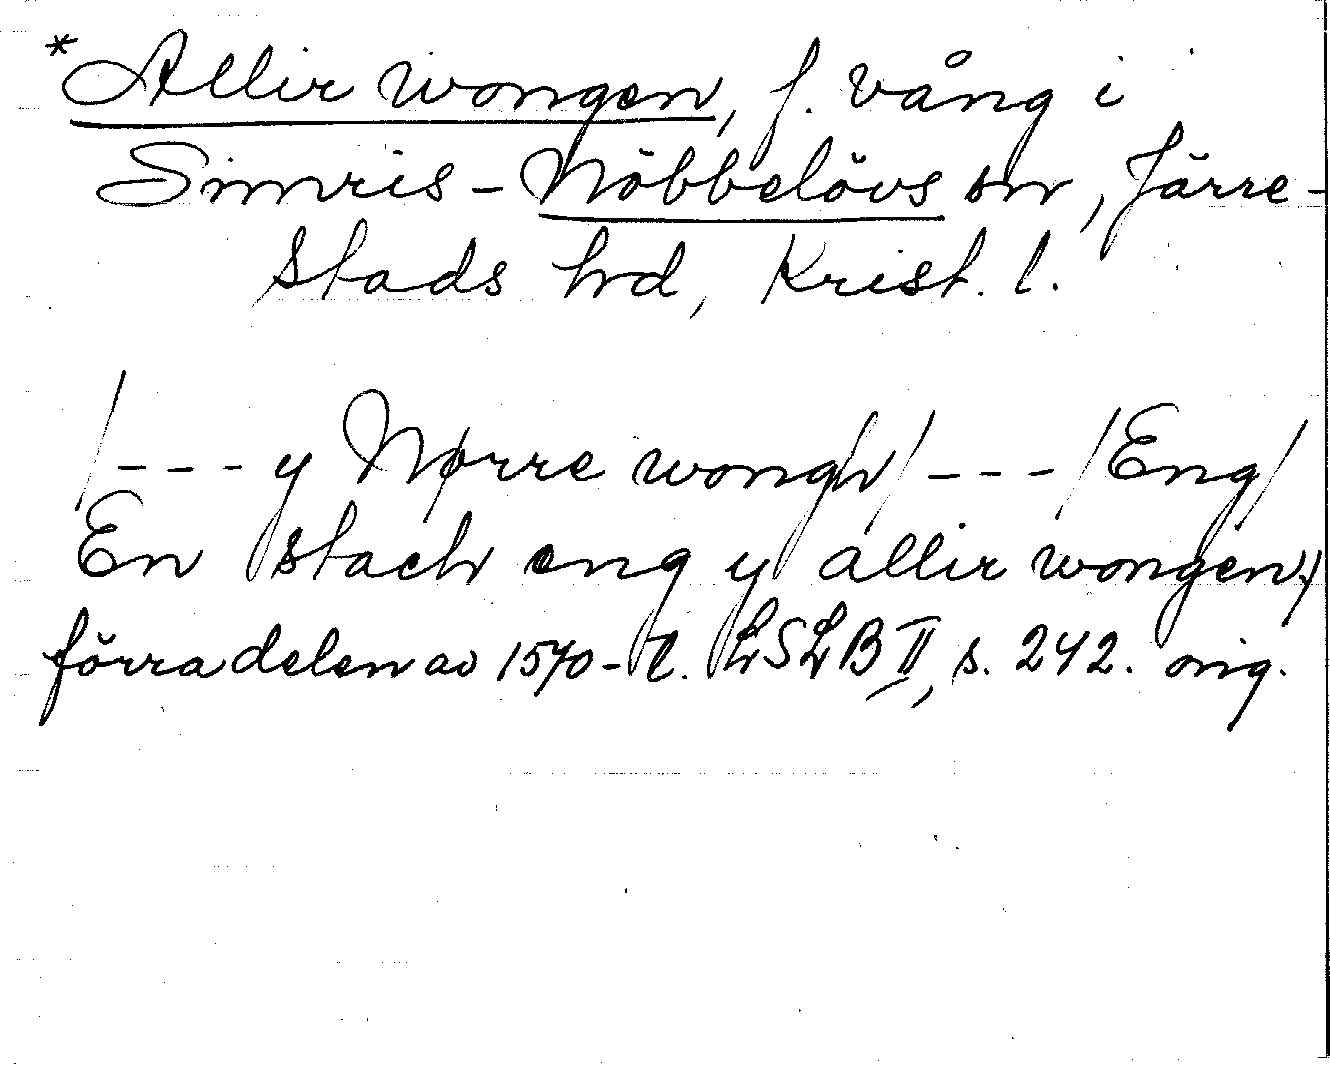 *Allir wongen, f. vång i
Simris-Nöbbelövs sn, Järre-
stads hd, Krist. l.
/--- y Nørre wongh/ --- /Eng/
En stach eng y allir wongen,/
förra delen av 1570-t. LSLB II, s. 242. orig.